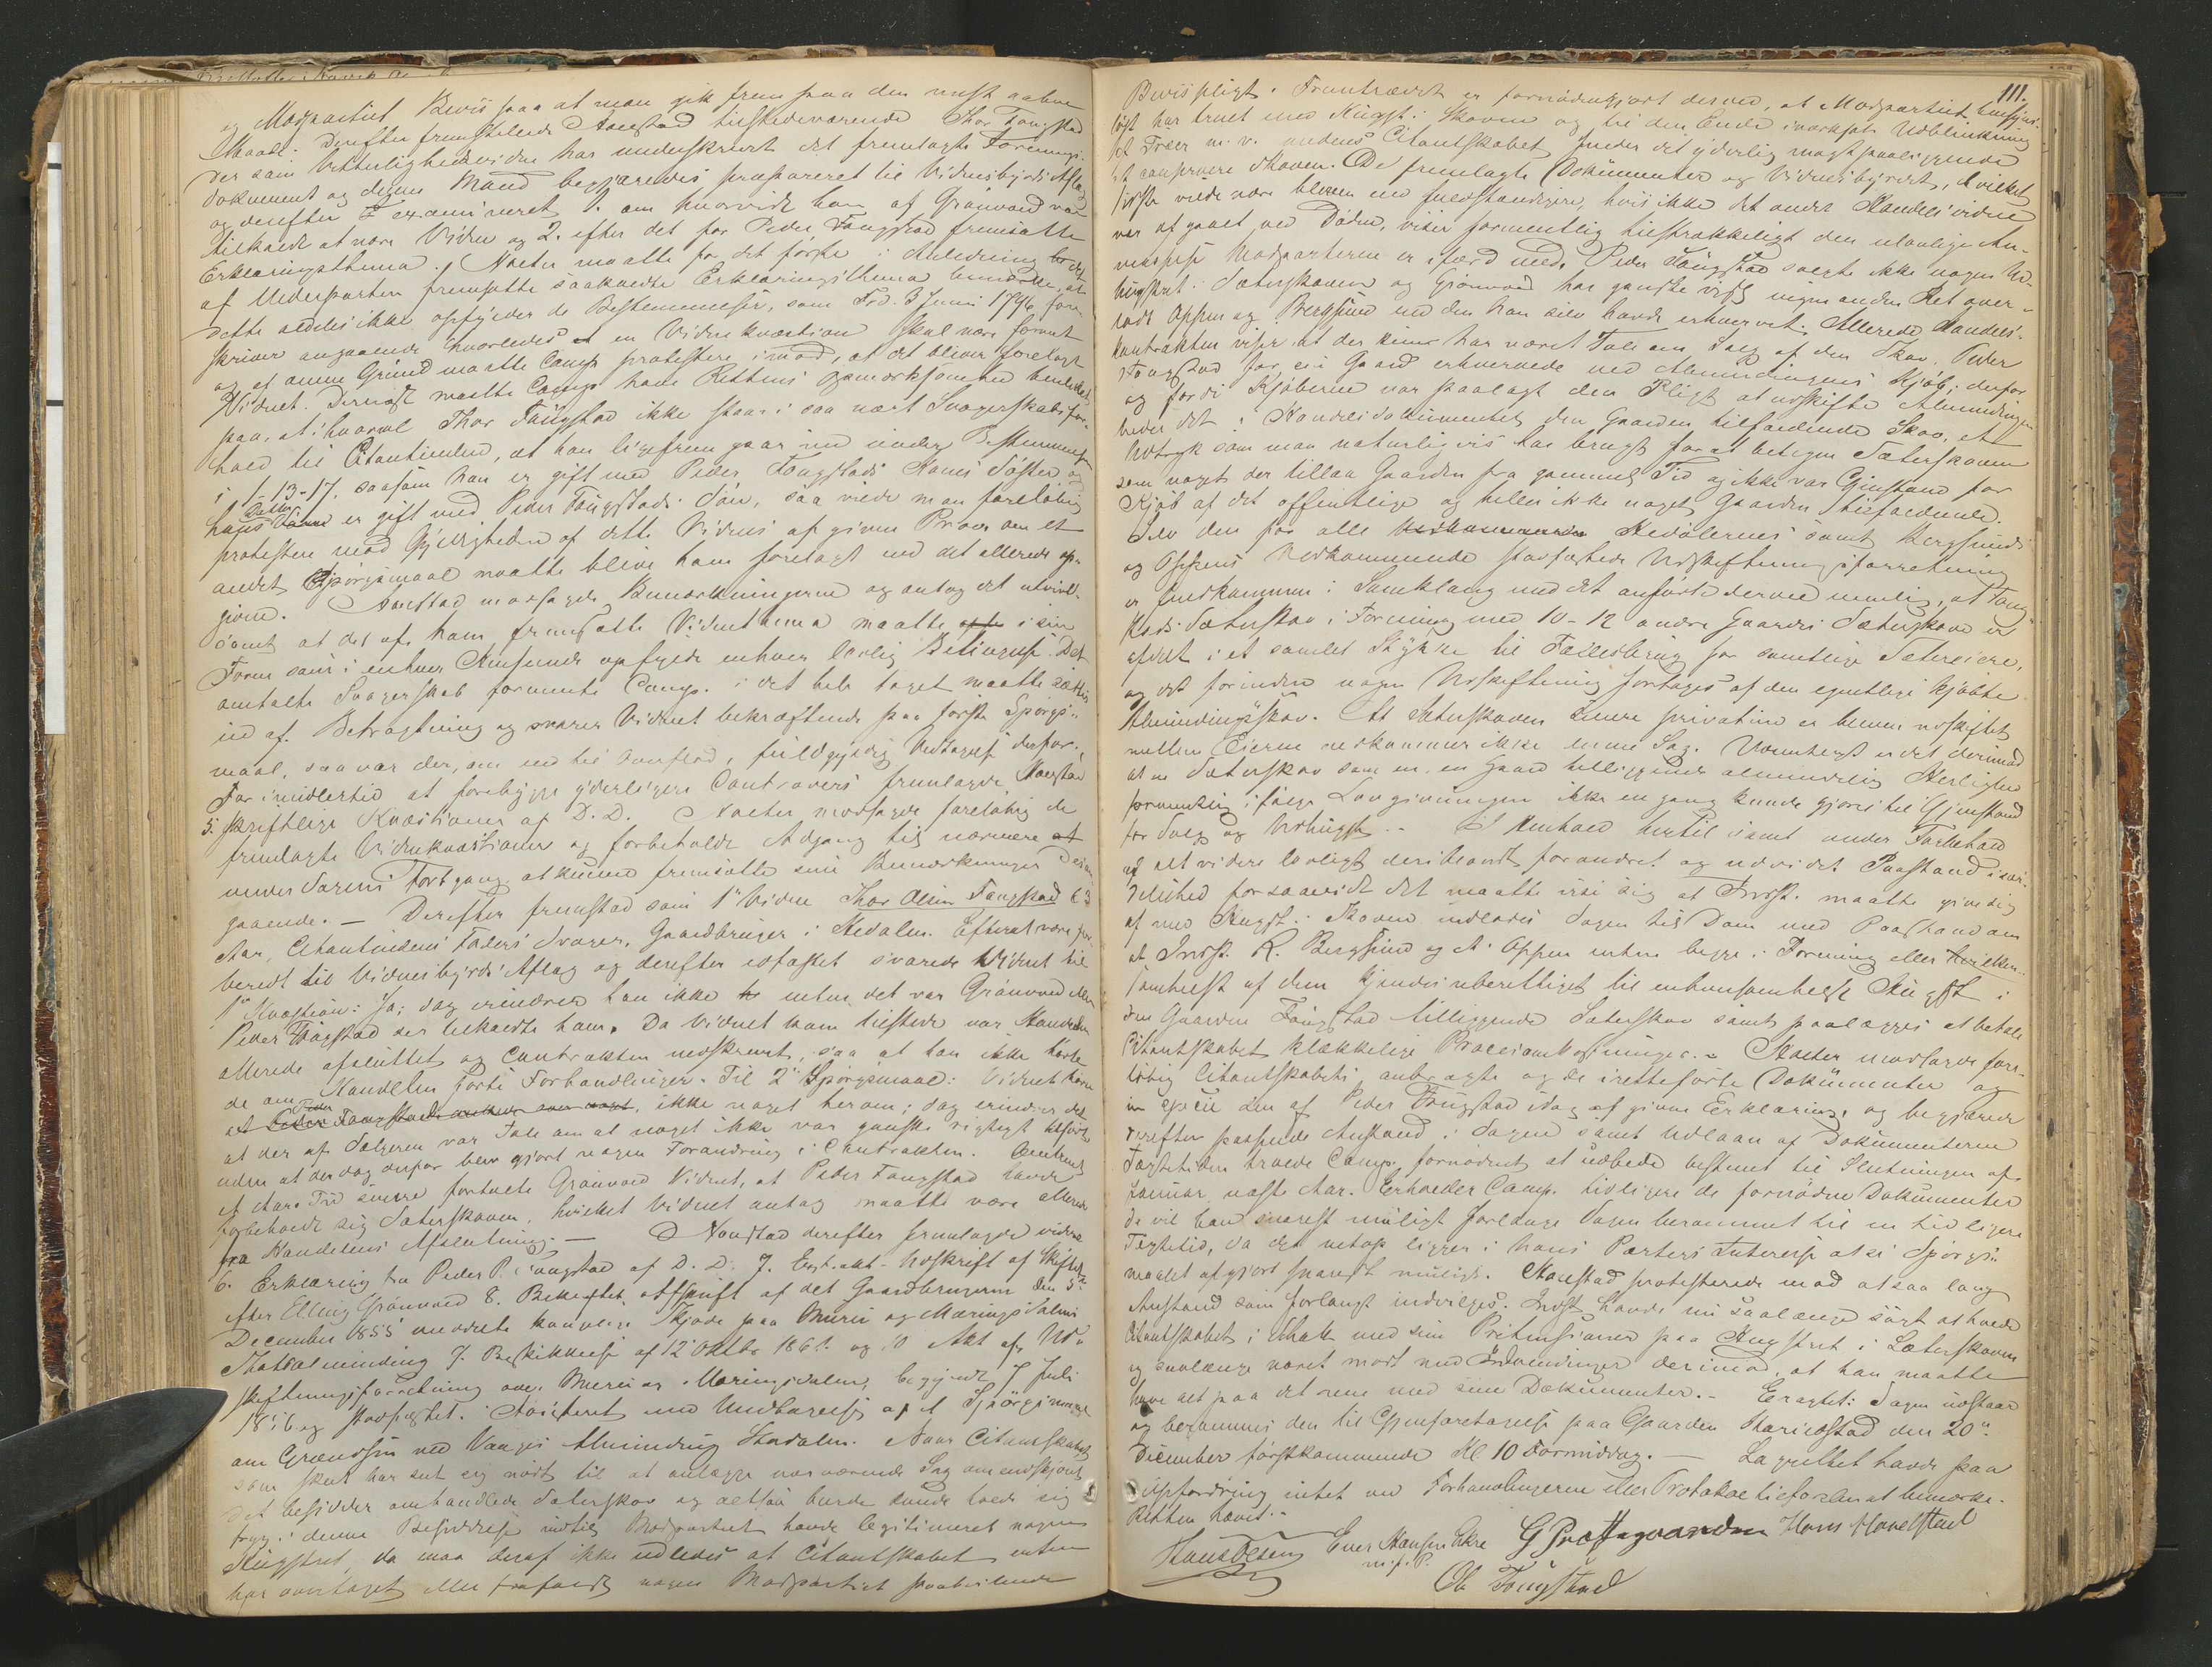 og Modpartiet Beviis paa at man gik frem paa den mest aabne
Maade. Derefter fremstillede Aanstad tilstedeværende Thor Fougstad
der som Vitterlighedsvidne har underskrevet det fremlagte Forenings-
dokument og denne Mand begjæredes præpareret til Vidnesbyrds Aflæg
og derefter examineret 1. om hvorvidt han af Grönvold var
tilkaldt at være Vidne og 2. efter det for Peder Fougstad fremsatte
Erklæringsthema. Næeter maatte for det förste i Anledning
af Underparten fremsatte saakaldte Erklæringsthema bemærke, at
dette aldeles ikke opfylder de Bestemmelser, som Frd. 3 Juni 1796 fore-
skriver angaaende hvorledes et en Vidnekvæstion skal være formet
og af denne Grund maatte Comp. protestere imod, at det bliver forelagt
Vidnet. Dernæst maatte Comp. have Rettens Opmærksomhed henledet
paa, at ihvorvel Thor Fougstad ikke staar i saa nært Svogerskabsfor-
hold til Citantinden, at han ligefrem gaar ind under Bestemmelsen
i 1-13-17, saasom han er gift med Peder Fougstads Kones Söster og
hans Datter er gift med Peder Fougstads Sön, saa vilde man foreløbig
protestere mod Gyldigheden af dette Vidnes afgivne Prov om et
andet Spörgsmaal maatte blive ham forelagt end det allerede op-
givne. Aanstad modsagde Bemærkningerne og antog det utvivl-
somt at det af ham fremsatte Vidnethema maatte i sin
Form som i enhver Henseende opfylde enhver lovlig Betingelse. Det
omtalte Svogerskab formente Comp. i det hele taget maatte sættes
ud af Betragtning og svarer Vidnet bekræftende paa förste Spörgs-
maal, saa var der, om end til Overflod, fuldgyldig Vedtagelse derfor.
For imidlertid at forebygge yderligere Controvers fremlagde Aanstad
5. skriftlige Kvæstioner af D. D. Næeter modsagde foreløbig de
fremlagte Vidnekvæstioner og forbeholdt Adgang til nærmere
under Sagens Fortgang at kunne fremsætte sine Bemærkninger desan-
gaaende. — Derefter fremstod som 1ste Vidne Thor Olsen Fougstad 63
Aar, Citantindens Faders Svoger, Gaardbruger i Hedalen. Efterat være for-
beredt til Vidnesbyrds Aflæg og derefter edfæstet svarede Vidnet til
1ste Kvæstion: Ja; dog erindrer han ikke enten det var Grönvold eller
Peder Fougstad der tilkaldte ham. Da Vidnet kom tilstede var Handelen
allerede afsluttet og Contrakten nedskrevet, saa at han ikke hörte
de om Handelen förte Forhandlinger. Til 2det Spörgsmaal: Vidnet hörte
ikke noget herom; dog erindrer det
at der af Sælgeren var Tale om at noget ikke var ganske rigtigt tilført
uden at der dog derfor blev gjort nogen Forandring i Contrakten. Omtrent
et Aars Tid senere fortalte Grönvold Vidnet, at Peder Fougstad havde
forbeholdt sig Sæterskoven, hvilket Vidnet antog maatte være allerede
fra Handelens Afslutning. — Aanstad derefter fremlagde videre
6. Erklæring fra Peder P. Fougstad af D. D. 7. Extrakt-Udskrift af Skiftet
efter Elling Grönvold 8. Bekræftet Afskrift af det Gaardbrugerne den 5te
December 1855 meddelte kongelige Skjöde paa Muru og Mæringsdalens
Statsalminding 9. Beskikkelse af 12 Oktbr 1861 og 10 Akt af Ud-
skiftningsforretning over Muru og Mæringsdalen, begyndt 7 Juli
1856 og stadfæstet. Aanstad med Undtagelse af et Spörgsmaal
om Grændsen ved Vanges Alminding Hedalen. Naar Citantskabet
som skeet har seet sig nödt til at anlægge nærværende Sag om endskjönt
det besidder omhandlede Sæterskov og altsaa burde kunde holde sig
tryg i denne Besiddelse indtil Modpartiet havde legitimeret nogen
Hugstret, da maa deraf ikke udledes at Citantskabet enten
har overtaget eller frafaldt nogen Modpartiet paahvilende
111.
Bevispligt. Fremtrædet er fornödengjort derved, at Modpartiet hensyns-
löst har truet med Hugst i Skoven og til den Ende iværksat Udblinkning
af Træer m. v. medens Citantskabet finder det yderlig magtpaaliggende
at conservere Skoven. De fremlagte Dokumenter og Vidnesbyrdet, hvilket
sidste vilde være bleven end fuldstændigere, hvis ikke det andet Handelsvidne
var afgaaet ved Döden, viser formentlig tilstrækkeligt den ulovlige An-
vendelse Modparterne er ifærd med. Peder Fougstad solgte ikke nogen Ud-
hugstret i Sæterskoven og Grönvold har ganske vist ingen anden Ret over-
ladt Oppen og Bergsund end den han selv havde erhvervet. Allerede Handels-
kontrakten viser at der kun har været Tale om Salg af den Skov, Peder
Fougstad for sin Gaard erhvervede ved Almindingens Kjöb; derfor
og fordi Kjöberne var paalagt den Pligt at udskifte Almindingen
heder det i Handelsdokumentet den Gaarden tilfaldende Skov, et
Udtryk som man naturligvis har brugt for at betegne Sæterskoven
som noget der tillaa Gaarden fra gammel Tid og ikke var Gjenstand for
Kjöb af det offentlige og heller ikke noget Gaarden tilfaldende.
Selv den for alle Hedölernes samt Bergsunds
og Oppens Vedkommende stadfæstede Udskiftningsforretning
er fuldkommen i Samklang med det anförte derved nemlig, at Foug-
stads Sæterskov i Forening med 10-12 andre Gaardes Sæterskove er
afdelt i et samlet Stykke til Fællesbrug for samtlige Sætereiere,
og det forinden nogen Udskiftning foretages af den egentlige kjöbte
Almindingsskov. At Sæterskoven senere privatim er bleven udskiftet
mellem Eierne vedkommer ikke denne Sag. Væsentligst er det derimod
at en Sæterskov som en en Gaard tilliggende almindelig Herlighed
formentlig ifølge Lovgivningen ikke en gang kunde gjøres til Gjenstand
for Salg og Udhugst. I Henhold hertil samt under Forbehold
af alt videre lovligt deribeandt forandret og udvidet Paastand i sær-
delshed forsaavidt det maatte vise sig at Indst. maatte give sig
af med Hugst i Skoven indlodes Sagen til Dom med Paastand om
at Indst. K. Bergsund og A. Oppen enten begge i Forening eller hvilken-
somhelst af dem kjendes uberettiget til enhversomhelst Hugst i
den Gaarden Fougstad tilliggende Sæterskov samt paalægges at betale
Citantskabet klækkelige Procesomkostninger. — Næeter modsagde fore-
löbig Citantskabets anbragte og de iretteförte Dokumenter og
in specie den af Peder Fougstad idag afgivne Erklæring, og begjærede
derefter passende Anstand i Sagen samt Udlaan af Dokumenterne
Tægtetiden troede Comp. fornødent at udbede bestemt til Slutningen af
Januar næste Aar. Erholder Comp. tidligere de fornødne Dokumenter
da vil han snarest muligt forlange Sagen berammet til en tidligere
Tægtetid, da det netop ligger i hans Parters Interesse at se Spörgs-
maalet afgjort snarest muligt. Aanstad protesterede mod at saa lang
Anstand som forlangt indvilges. Indst. havde nu saalænge sögt at holde
Citantskabet i Skak med sine Prætensioner paa Hugstret i Sæterskoven
og saalænge været mödt med Indvendinger derimod, at han maatte
have alt paa det rene med sine Dokumenter. — Eragtet: Sagen udstaar
og berammes den til Gjenforetagelse paa Gaarden Storiedstad den 20de
December förstkommende Kl. 10 Formiddag. — Lagrettet havde paa
Opfordring intet ved Forhandlingerne eller Protokoltilförslen at bemærke.
Retten hævet.
Hans Olsen Ever Hansen Ekre G Prestegaarden Hans Havelstad
m. f. P.
Ole Fougstad